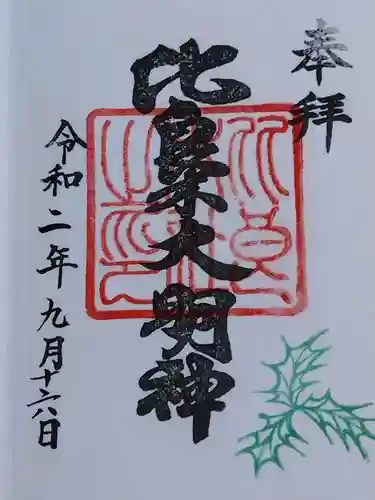 奉拝
比枲大明神
令和二年九月十六日